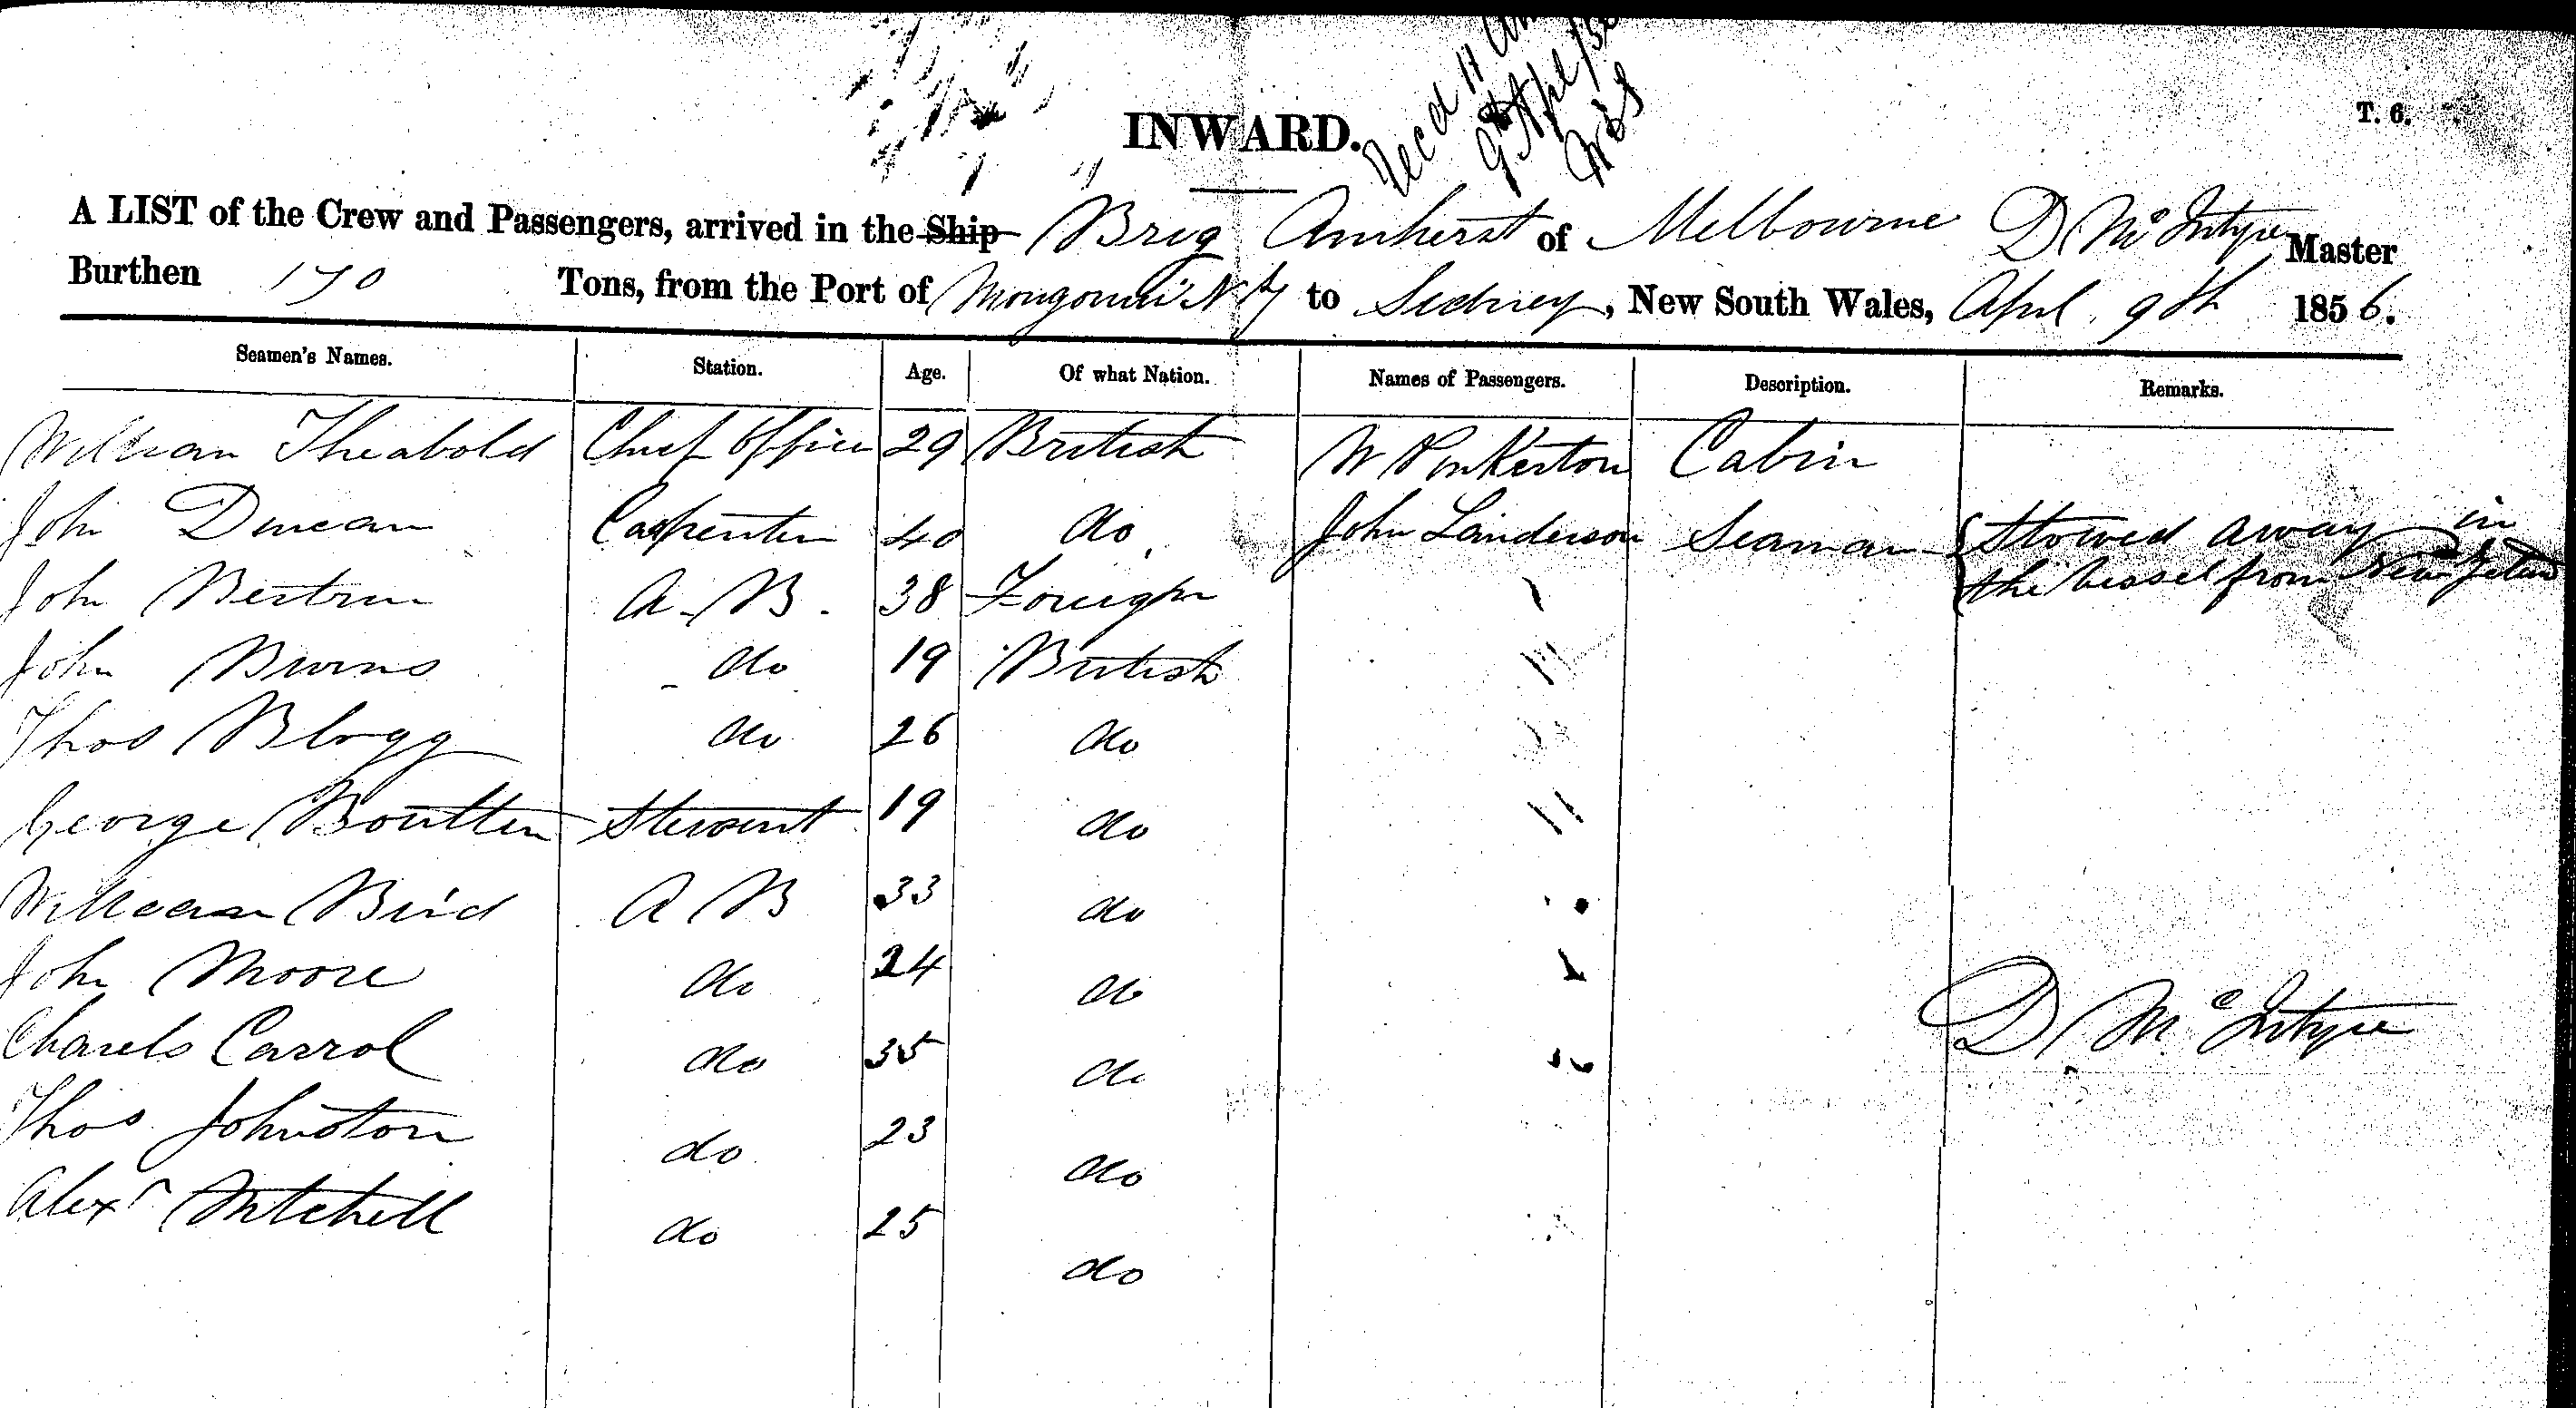 INWARD.
T. 6.
A LIST of the Crew and Passengers, arrived in the Ship Brig Amherst of Melbourne D McIntyre Master
Burthen 170 Tons, from the Port of Mongonui N Z to Sedney, New South Wales, Aprl 9th 1856.
Seamen's Names. Station. Age. Of what Nation. Names of Passengers. Description. Remarks.
William Theabold Chief Officer 29 British W Pinkerton Cabin
John Duncan Carpenter 40 do John Sanderson Seaman Stowed away in
the vessel from New Zeland
John Bertrun A B. 38 Foreign
John Burns do 19 British
Thos Blogg do 26 do
George Boultten Steward 19 do
William Bird A B 33 do
John Moore do 24 do
Charels Carrol do 35 do
D McIntyre
Thos Johnston do 23 do
Alexr Mitchell do 25 do